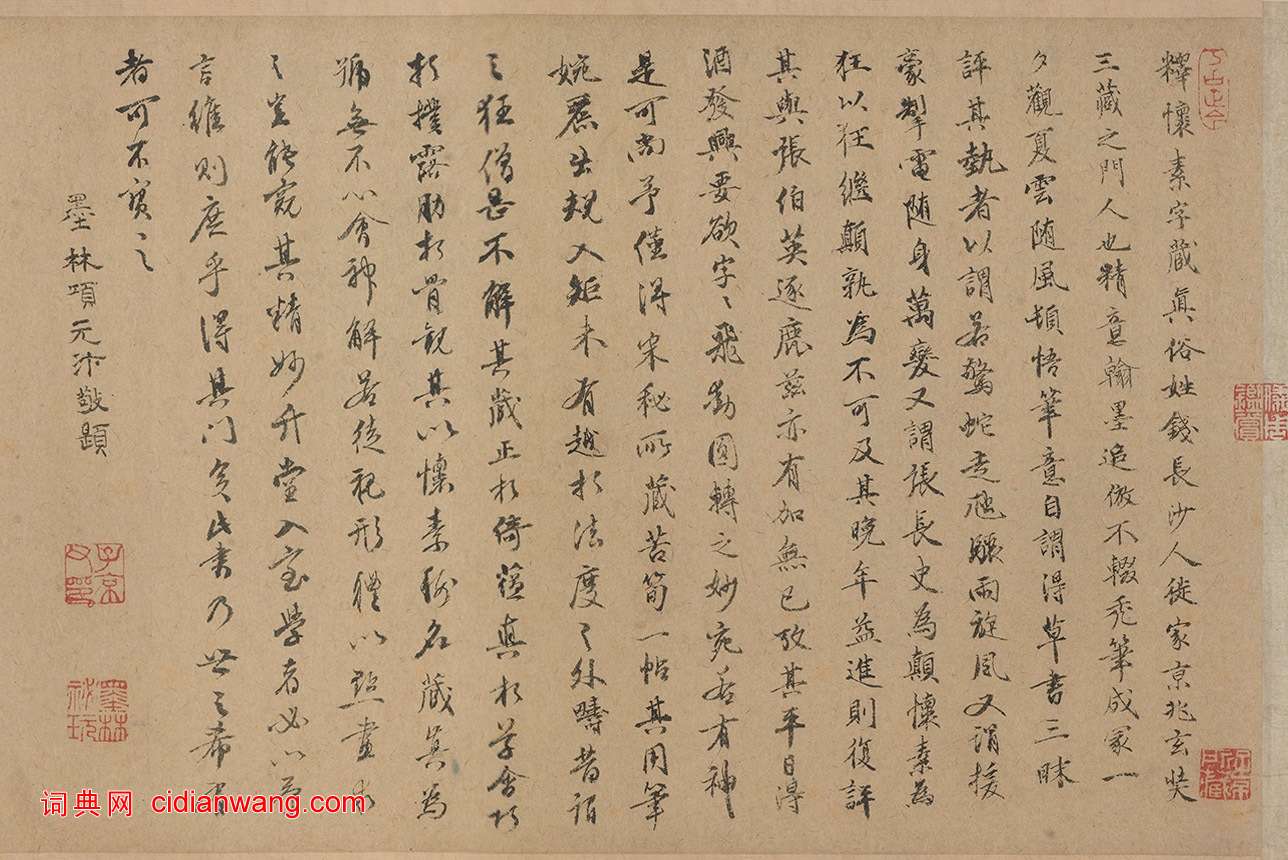 釋懷素字藏真俗姓錢長沙人徙家京兆玄奘
三藏之門人也精意翰墨追倣不輟禿筆成冢一
夕觀夏雲随風頓悟筆意自謂得草書三昧
評其執者以謂若驚蛇走虺驟雨旋風又謂援
豪掣電随身萬變又謂張長史為顛懷素為
狂以狂繼顛孰為不可及其晚年益進則復評
其與張伯英逐鹿茲亦有加無已故其平日得
酒發興要欲字〻飛動圓轉之妙宛若有神
是可尚予僅得宋秘所藏苦筍一帖其用筆
婉麗出規入矩未有越於法度之外疇昔謂
之狂僧甚不解其藏正於倚蘊真於草含巧
於樸露肋於骨觀其以懷素稱名藏真為
號無不心會神解若徒視形體以點畫求
之豈能窺其精妙升堂入室學者必以菊
言維則庶乎得其門矣此書乃世之希有
者可不寶之
墨林項元汴敬題
子京父印
墨林祕玩
词典网 cidianwang.com